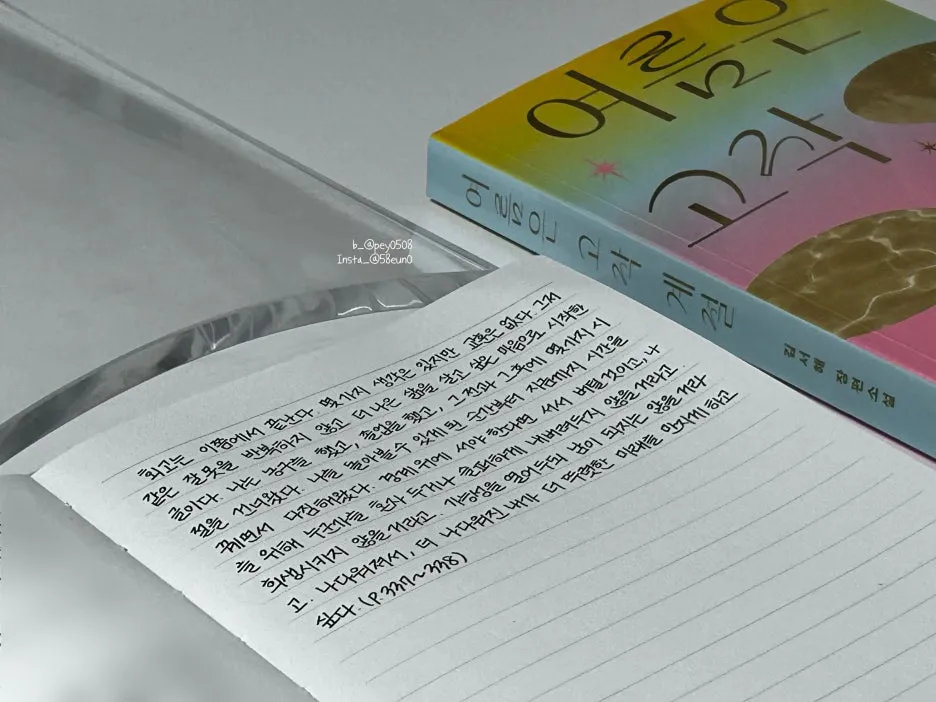 b_@pey0508
Insta_@58eun0
여름은
고작
여름은 고작 계절
김서해 장편소설
회고는 이쯤에서 끝난다. 몇가지 생각은 있지만 교훈은 없다. 그저
같은 잘못을 반복하지 않고 더 나은 삶을 살고 싶은 마음으로 시작한
글이다. 나는 농구를 했고, 졸업을 했고, 그 전과 그 후에 몇가지 시
절을 건너왔다. 나를 돌아볼 수 있게 된 순간부터 지금까지 시간을
꿰면서 다짐해왔다. 경계 위에 서야 한다면 서서 버틸 것이고, 나
를 위해 누군가를 혼자 두거나 슬퍼하게 내버려두지 않을거라고.
희생시키지 않을거라고. 가능성을 열어두되 남이 되지는 않을거라
고. 나다워져서, 더 나다워진 내가 더 뚜렷한 미래를 만나게 하고
싶다. (p.337~338)